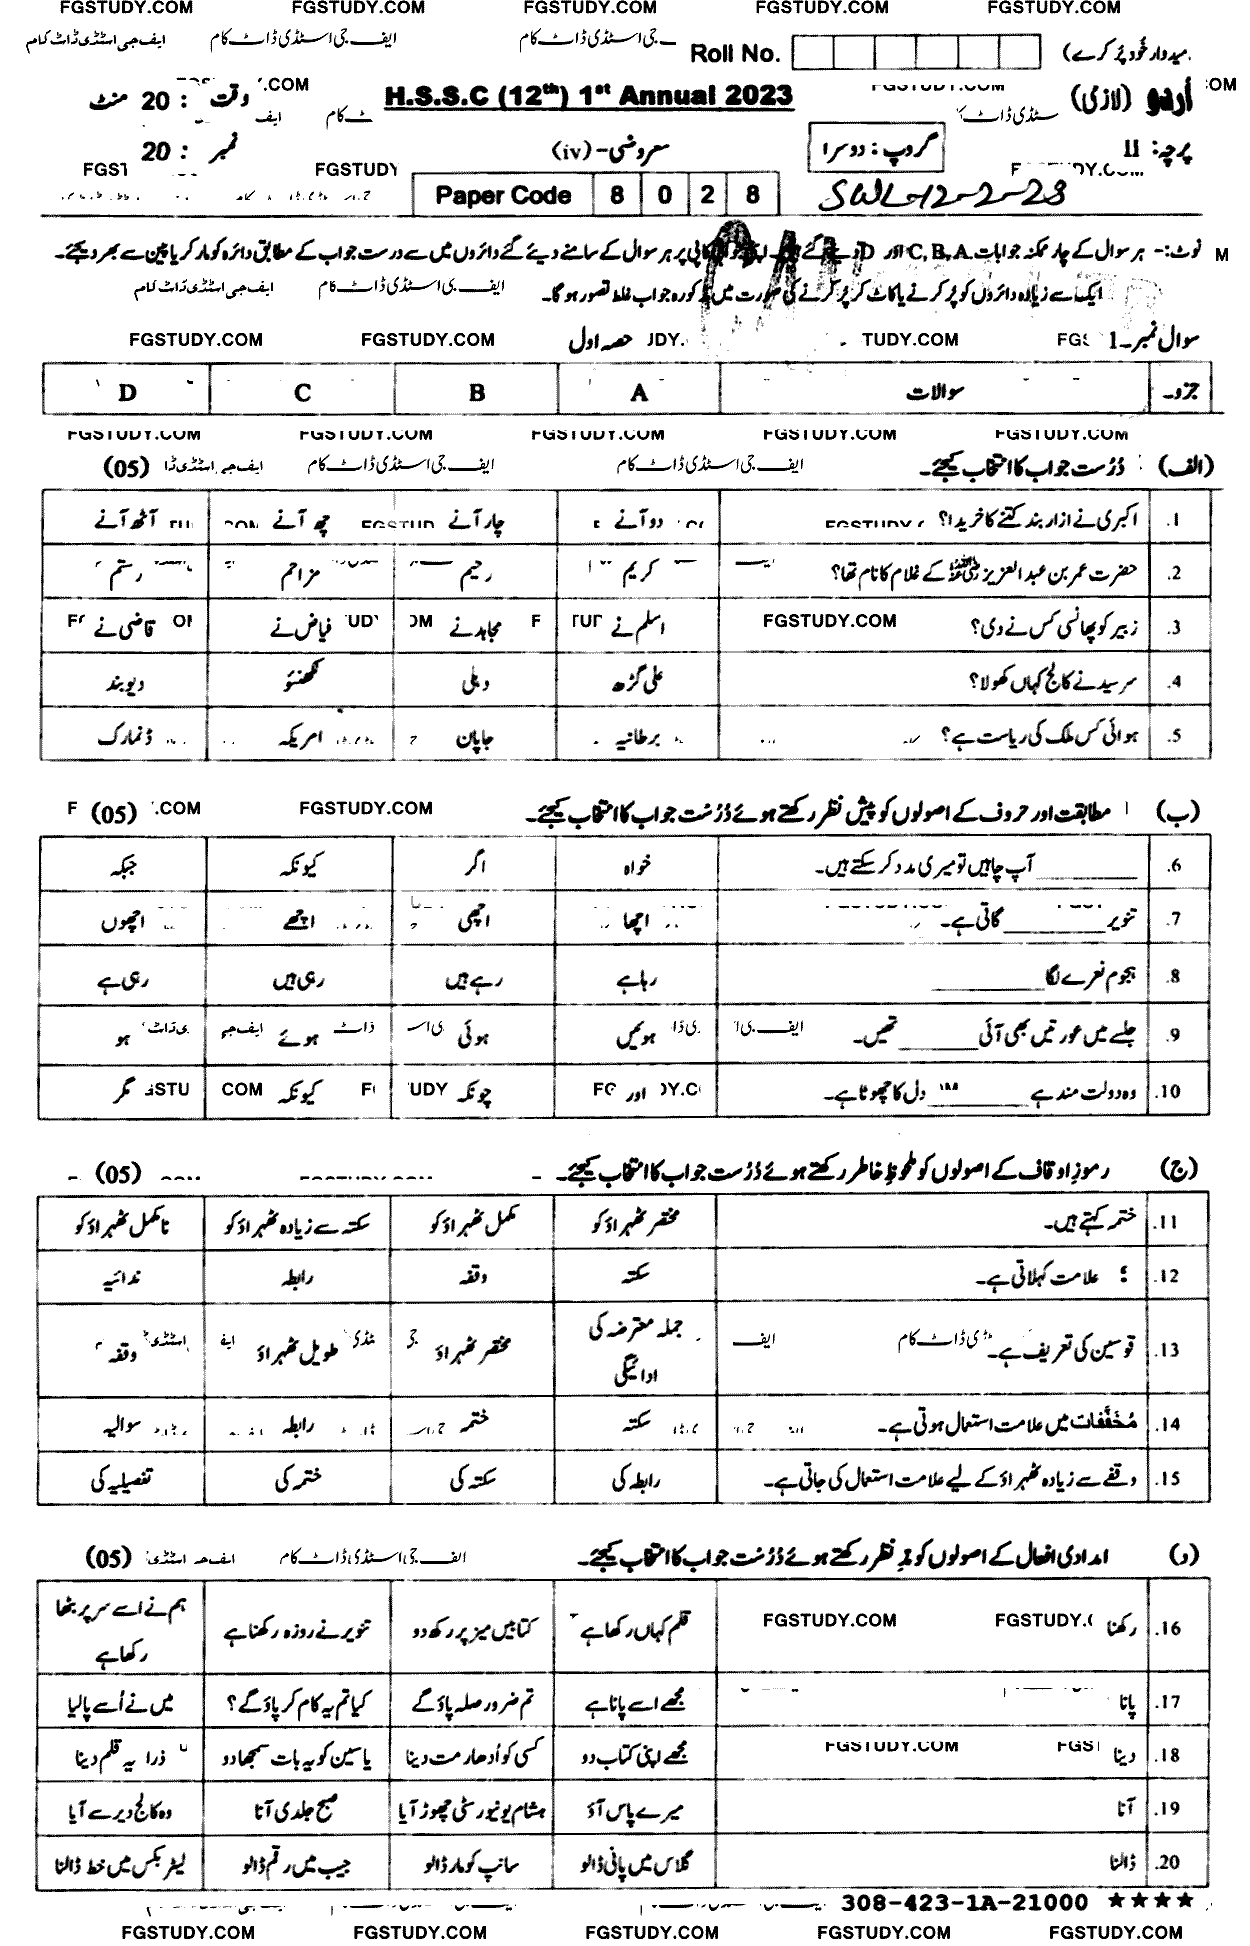 FGSTUDY.COM FGSTUDY.COM FGSTUDY.COM FGSTUDY.COM FGSTUDY.COM
Roll No. (میدوار خود پُر کرے)
اُردو (لازمی) H.S.S.C (12th) 1st Annual 2023 وقت : 20 منٹ
پرچہ: II گروپ : دوسرا معروضی-(iv) نمبر : 20
Paper Code 8 0 2 8 SWL-12-2-23
نوٹ:- ہر سوال کے چار ممکنہ جوابات C,B,A اور D دیے گئے ہیں۔ جوابی کاپی پر ہر سوال کے سامنے دیے گئے دائروں میں سے درست جواب کے مطابق دائرہ کو مارکر یا پین سے بھر دیجئے۔
ایک سے زیادہ دائروں کو پُر کرنے یا کاٹ کر پُر کرنے کی صورت میں مذکورہ جواب غلط تصور ہو گا۔
سوال نمبر۔1 حصہ اول FGSTUDY.COM FGSTUDY.COM
جزو۔ سوالات A B C D
(الف) دُرُست جواب کا انتخاب کیجئے۔ (05)
1. اکبری نے ازار بند کتنے کا خریدا؟ دو آنے چار آنے چھ آنے آٹھ آنے
2. حضرت عمر بن عبدالعزیز ﷺ کے غلام کا نام تھا؟ کریم رحیم مزاحم رستم
3. زبیر کو پھانسی کس نے دی؟ اسلم نے مجاہد نے فیاض نے قاضی نے
4. سرسید نے کالج کہاں کھولا؟ علی گڑھ دہلی لکھنئو دیوبند
5. ہوائی کس ملک کی ریاست ہے؟ برطانیہ جاپان امریکہ ڈنمارک
(ب) مطابقت اور حروف کے اصولوں کو پیش نظر رکھتے ہوئے دُرُست جواب کا انتخاب کیجئے۔ (05)
6. ________ آپ چاہیں تو میری مدد کر سکتے ہیں۔ خواہ اگر کیونکہ جبکہ
7. تنویر ________ گاتی ہے۔ اچھا اچھی اچھے اچھوں
8. ہجوم نعرے لگا ________ رہا ہے رہے ہیں رہی ہیں رہی ہے
9. جلسے میں عورتیں بھی آئی ________ تھیں۔ ہوئیں ہوئی ہوئے ہو
10. وہ دولت مند ہے ________ دل کا چھوٹا ہے۔ اور چونکہ کیونکہ مگر
(ج) رموزِ اوقاف کے اصولوں کو ملحوظِ خاطر رکھتے ہوئے دُرُست جواب کا انتخاب کیجئے۔ (05)
11. ختمہ کہتے ہیں۔ مختصر ٹھہراؤ کو مکمل ٹھہراؤ کو سکتہ سے زیادہ ٹھہراؤ کو نامکمل ٹھہراؤ کو
12. ؛ علامت کہلاتی ہے۔ سکتہ وقفہ رابطہ ندائیہ
13. قوسین کی تعریف ہے۔ جملہ معترضہ کی ادائیگی مختصر ٹھہراؤ طویل ٹھہراؤ وقفہ
14. مُخَفَّفات میں علامت استعمال ہوتی ہے۔ سکتہ ختمہ رابطہ سوالیہ
15. وقفے سے زیادہ ٹھہراؤ کے لیے علامت استعمال کی جاتی ہے۔ رابطہ کی سکتہ کی ختمہ کی تفصیلیہ کی
(د) امدادی افعال کے اصولوں کو مدِ نظر رکھتے ہوئے دُرُست جواب کا انتخاب کیجئے۔ (05)
16. رکھنا قلم کہاں رکھا ہے کتابیں میز پر رکھ دو تنویر نے روزہ رکھنا ہے ہم نے اسے سر پر بٹھا رکھا ہے
17. پانا مجھے اسے پانا ہے تم ضرور صلہ پاؤ گے کیا تم یہ کام کر پاؤ گے؟ میں نے اُسے پا لیا
18. دینا مجھے اپنی کتاب دو کسی کو اُدھار مت دینا یاسین کو یہ بات سمجھا دو ذرا یہ قلم دینا
19. آنا میرے پاس آؤ ہشام یونیورسٹی چھوڑ آیا صبح جلدی آنا وہ کالج دیر سے آیا
20. ڈالنا گلاس میں پانی ڈالو سانپ کو مار ڈالو جیب میں رقم ڈالو لیٹر بکس میں خط ڈالنا
308-423-1A-21000 ★★★★
FGSTUDY.COM FGSTUDY.COM FGSTUDY.COM FGSTUDY.COM FGSTUDY.COM